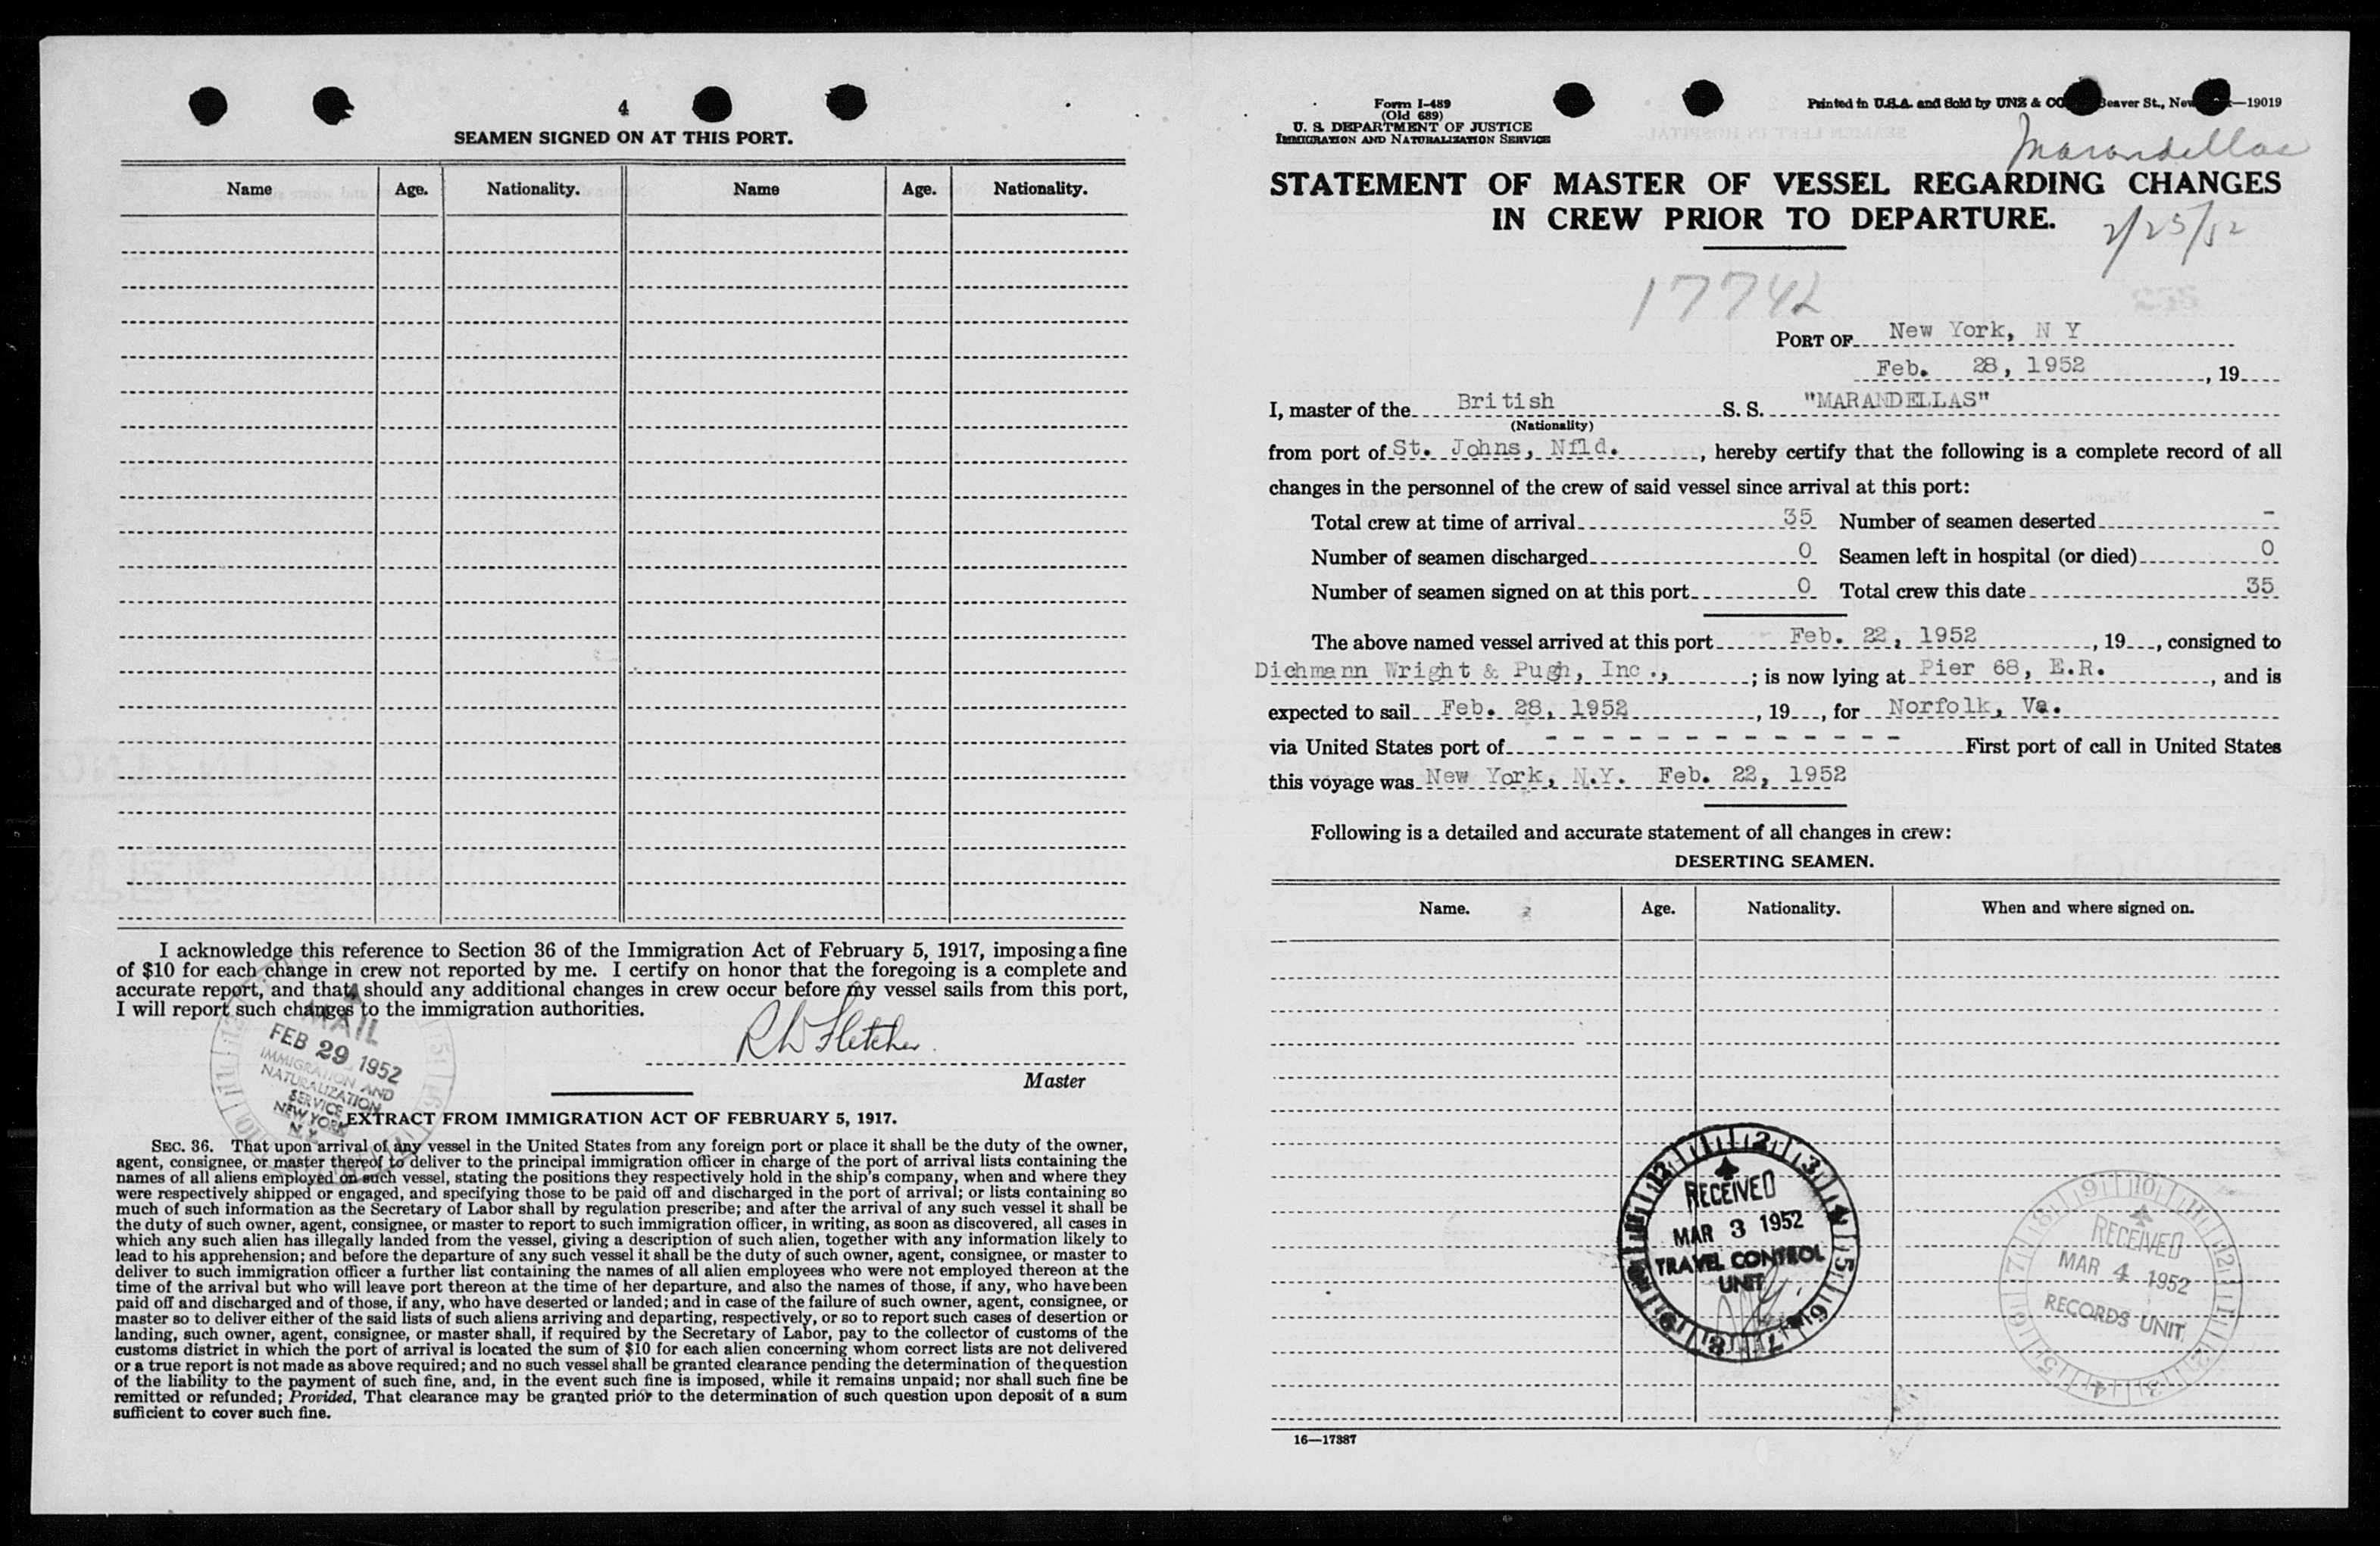 4
SEAMEN SIGNED ON AT THIS PORT.
Name Age. Nationality. Name Age. Nationality.
I acknowledge this reference to Section 36 of the Immigration Act of February 5, 1917, imposing a fine
of $10 for each change in crew not reported by me. I certify on honor that the foregoing is a complete and
accurate report, and that, should any additional changes in crew occur before my vessel sails from this port,
I will report such changes to the immigration authorities.
R W Fletcher
Master
MAIL
FEB 29 1952
IMMIGRATION AND
NATURALIZATION
SERVICE
NEW YORK
N.Y.
EXTRACT FROM IMMIGRATION ACT OF FEBRUARY 5, 1917.
SEC. 36. That upon arrival of any vessel in the United States from any foreign port or place it shall be the duty of the owner,
agent, consignee, or master thereof to deliver to the principal immigration officer in charge of the port of arrival lists containing the
names of all aliens employed on such vessel, stating the positions they respectively hold in the ship's company, when and where they
were respectively shipped or engaged, and specifying those to be paid off and discharged in the port of arrival; or lists containing so
much of such information as the Secretary of Labor shall by regulation prescribe; and after the arrival of any such vessel it shall be
the duty of such owner, agent, consignee, or master to report to such immigration officer, in writing, as soon as discovered, all cases in
which any such alien has illegally landed from the vessel, giving a description of such alien, together with any information likely to
lead to his apprehension; and before the departure of any such vessel it shall be the duty of such owner, agent, consignee, or master to
deliver to such immigration officer a further list containing the names of all alien employees who were not employed thereon at the
time of the arrival but who will leave port thereon at the time of her departure, and also the names of those, if any, who have been
paid off and discharged and of those, if any, who have deserted or landed; and in case of the failure of such owner, agent, consignee, or
master so to deliver either of the said lists of such aliens arriving and departing, respectively, or so to report such cases of desertion or
landing, such owner, agent, consignee, or master shall, if required by the Secretary of Labor, pay to the collector of customs of the
customs district in which the port of arrival is located the sum of $10 for each alien concerning whom correct lists are not delivered
or a true report is not made as above required; and no such vessel shall be granted clearance pending the determination of the question
of the liability to the payment of such fine, and, in the event such fine is imposed, while it remains unpaid; nor shall such fine be
remitted or refunded; Provided, That clearance may be granted prior to the determination of such question upon deposit of a sum
sufficient to cover such fine.
Form I-489
(Old 689)
U. S. DEPARTMENT OF JUSTICE
IMMIGRATION AND NATURALIZATION SERVICE
Printed in U.S.A. and Sold by UNZ & CO Beaver St., New —19019
Marandellas
STATEMENT OF MASTER OF VESSEL REGARDING CHANGES
IN CREW PRIOR TO DEPARTURE.
2/25/52
17742
PORT OF New York, N Y
Feb. 28, 1952, 19
I, master of the British S. S. "MARANDELLAS"
(Nationality)
from port of St. Johns, Nfld., hereby certify that the following is a complete record of all
changes in the personnel of the crew of said vessel since arrival at this port:
Total crew at time of arrival 35 Number of seamen deserted -
Number of seamen discharged 0 Seamen left in hospital (or died) 0
Number of seamen signed on at this port 0 Total crew this date 35
The above named vessel arrived at this port Feb. 22, 1952, 19, consigned to
Dichmann Wright & Pugh, Inc., ; is now lying at Pier 68, E.R., and is
expected to sail Feb. 28, 1952, 19, for Norfolk, Va.
via United States port of - - - - - - - - - - - - - First port of call in United States
this voyage was New York, N.Y. Feb. 22, 1952
Following is a detailed and accurate statement of all changes in crew:
DESERTING SEAMEN.
Name. Age. Nationality. When and where signed on.
RECEIVED
MAR 3 1952
TRAVEL CONTROL
UNIT
RECEIVED
MAR 4 1952
RECORDS UNIT
16—17387